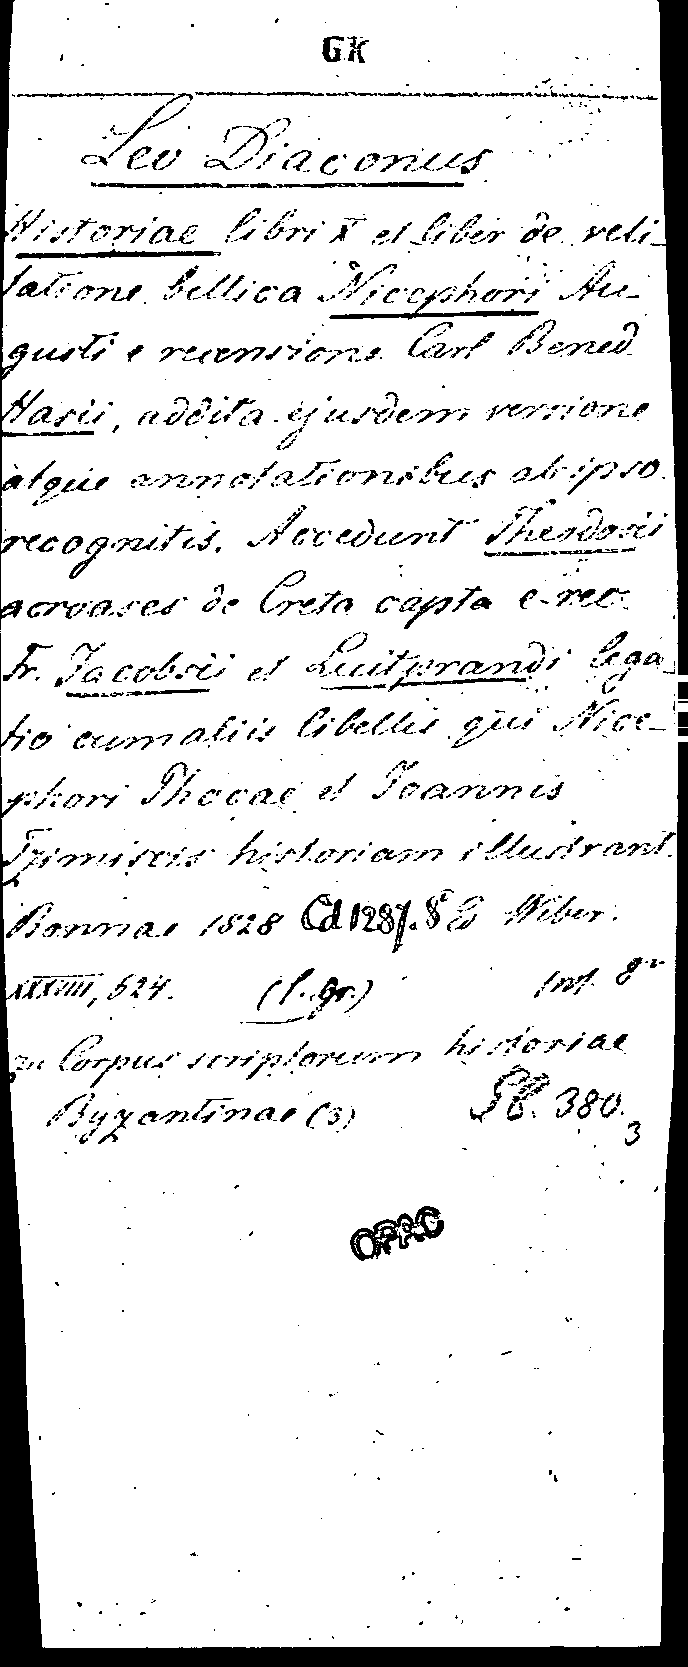 GK
Leo Diaconus
Historiae libri X et liber de veli-
tatione bellica Nicephori Au-
gusti e recensione Carl Bened.
Hasii, addita ejusdem versione
atque annotationibus ab ipso
recognitis. Accedunt Theodosii
acroases de Creta capta e rec.
Fr. Jacobsii et Luitprandi lega-
tio cum aliis libellis qui Nice-
phori Phocae et Joannis
Tzimiscis historiam illustrant.
Bonnae 1828 Cd 1287. 8° Ed Weber.
XXXVIII, 624. (l. gr.) 8°
zu Corpus scriptorum historiae
Byzantinae (3) 380.
3
OPAC